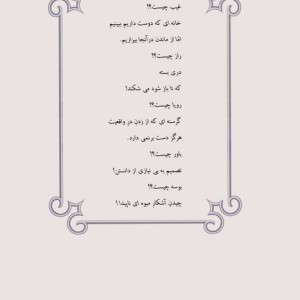 غیب چیست؟!
خانه ای که دوست داریم ببینیم
امّا از ماندن در آنجا بیزاریم.
راز چیست؟!
دری بسته
که تا باز شود می شکند!
رویا چیست؟!
گرسنه ای که از زدن در واقعیت
هرگز دست برنمی دارد.
باور چیست؟!
تصمیم به بی نیازی از دانستن!
بوسه چیست؟!
چیدن آشکار میوه ای ناپیدا!